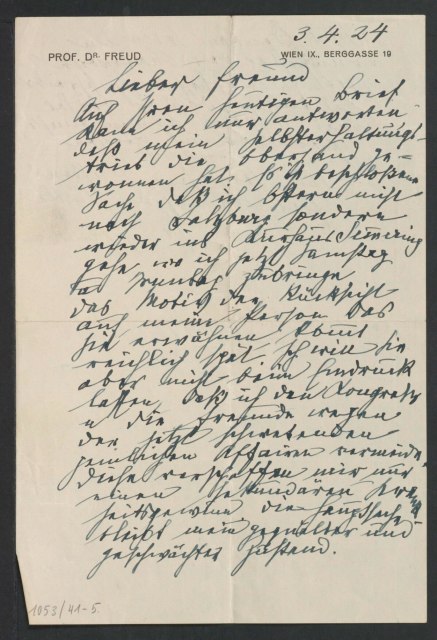 3.4.24
PROF. DR. FREUD
WIEN IX., BERGGASSE 19
Lieber Freund
Auf Ihren heutigen Brief
kann ich nur antworten
daß mein Selbsterhaltungs-
trieb die Oberhand ge-
wonnen hat. Es ist beschlossene
Sache, daß ich Ostern nicht
nach Salzburg sondern
wieder ins Kurhaus Semmering
gehe, wo ich jetzt Samstag
u Sonntag zubringe
Das Motiv der Rücksicht
auf meine Person das
Sie erwähnen kommt
reichlich spät. Ich will Sie
aber nicht beim Eindruck
lassen, daß ich den Congreß
u die Freunde wegen
der jetzt schwebenden
peinlichen Affairen vermeide.
Diese verschaffen mir nur
einen sekundären
die Hauptsache
bleibt mein gequälter und
geschwächter Zustand.
1053/41-5.